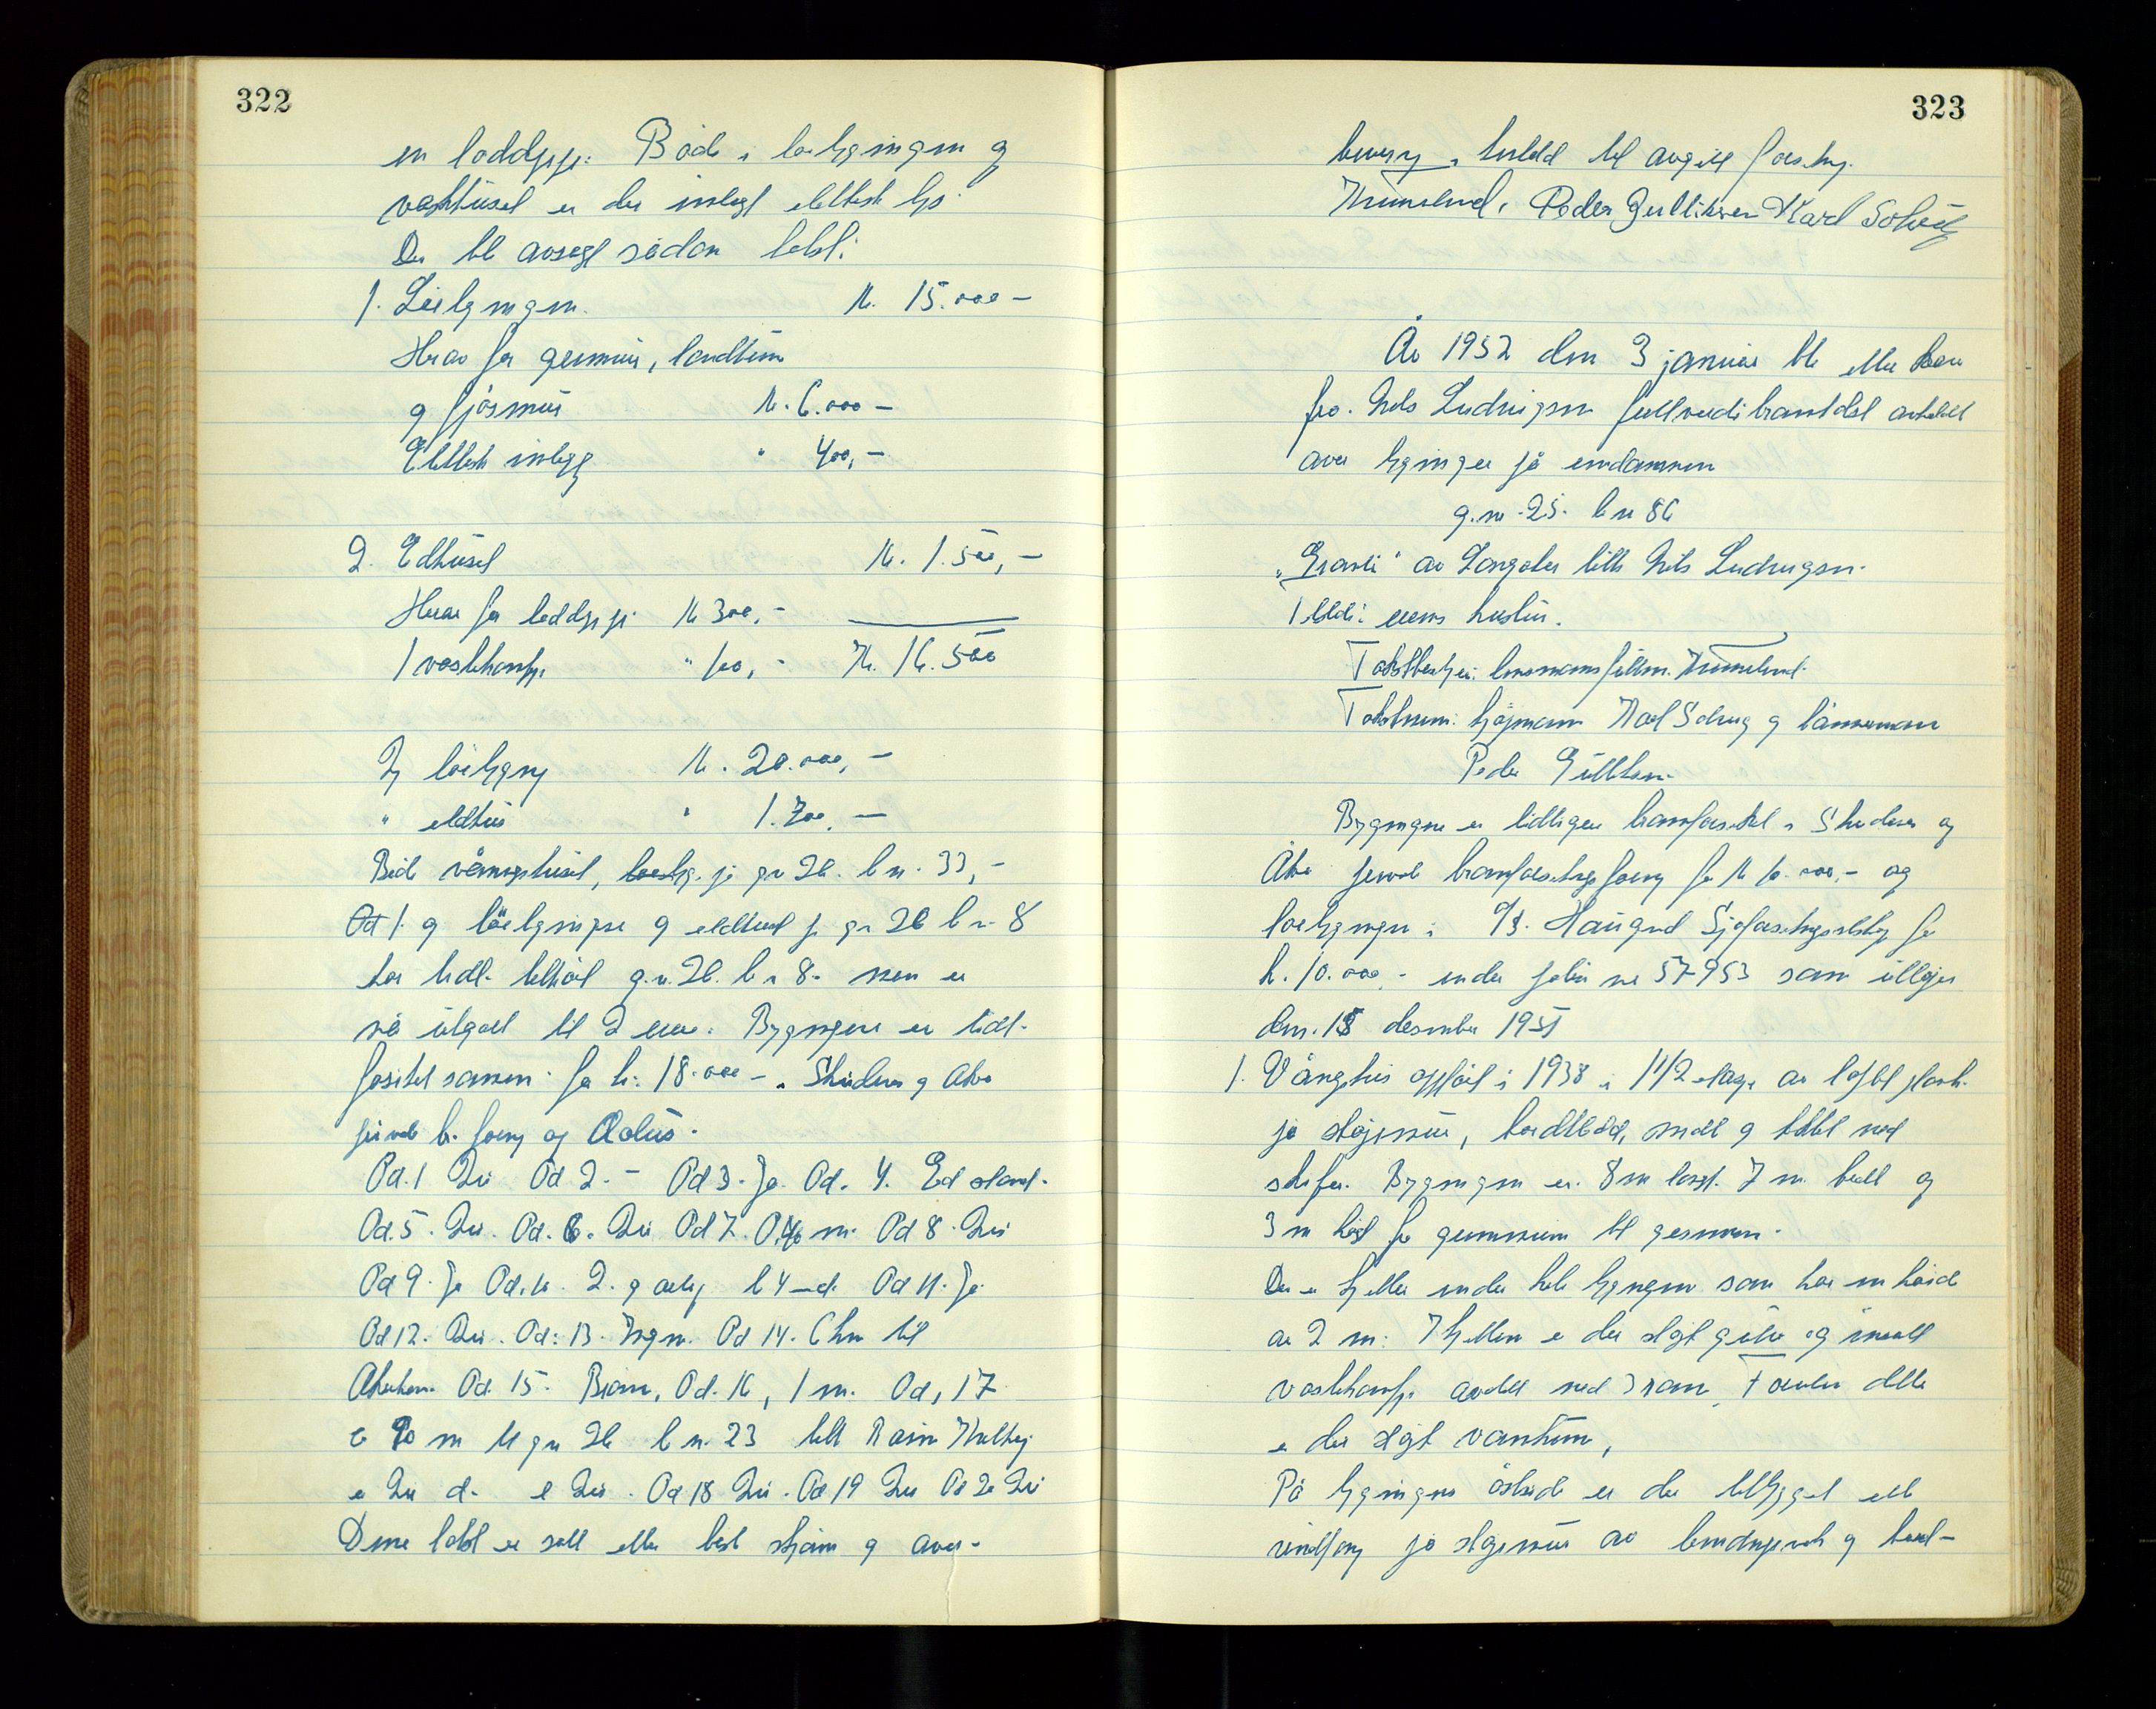 322
en loddpipe. Både i løebygningen og
vaskhuset er der inlagt elektrisk lys.
Der ble avsagt sådan takst:
1. Löebygningen. Kr. 15.000 –
Herav for grunmur, landtun
og fjösmur Kr. 6.000 –
Elektrisk inlegg " 400, –
2. Eldhuset Kr. 1.500, –
Herav for loddpipe Kr 300, –
1 vaskekomfyr " 100, – Kr. 16.500
Ny löebygning Kr. 20.000, –
" eldhus " 1.700, –
Både våningshuset, løebyg. på gn 26. bn. 33, –
Od 1. og löebygningen og eldhuset på gn 26 bn 8
har tidl. tilhört g.n. 26. bn 8. men er
nå utgått til 2 . Bygningene er tidl.
forsikret sammen for kr. 18.000 – i Skudenes og Åkra
private br. forening og Aolus.
Od. 1 Nei Od 2. – Od 3. Ja. Od. 4. Ed stand.
Od. 5. Nei. Od. 6. Nei Od 7. 0,40 m. Od 8. Nei
Od 9. Ja Od. 10. 2. g årlig b 4 – d. Od 11. Ja
Od 12. Nei. Od: 13. Ingen. Od 14. 6 km til
Åkrehamn. Od. 15. Brönn, Od. 16, 1 m. Od, 17
90 m til gn 26 bn. 23 tilh
c Nei d. e Nei. Od 18 Nei. Od 19 Nei Od 20 Nei
Denne takst er satt etter best skjönn og over-
323
bevisning i henhold til avgitt forsikring.
Peder Gulliksen Karl Solvig
År 1952 den 3 januar ble etter krav
fra Nils Ludvigsen fullverdi branntakst avholdt
over bygninger på eiendommen
g.nr. 25. bnr 86
"Granli" av Langåker tilh. Nils Ludvigsen.
Tilstede: eierens hustru.
Takstbestyrer: lensmannsfullm.
Takstmenn: byggmann Karl Solvig og lånnsmann
Peder Gulliksen.
Bygningene er tidligere brannforsikret i Skudenes og
Åkra private brannforsikringsforening for kr 10.000,– og
løebygningen i A/S. Haugesund Sjøforsikringsselskap for
kr. 10.000,– under polise nr 57953 som utløper
den. 18 desember 1951
1. Vångehus oppfört i 1938 i 1 1/2 etasje av laftet plank
på støpemur, bordkledd, malt og tekket med
skifer. Bygningen er. 8 m lang. 7 m bred og
3 m høg fra grunnmuren til gesimsen.
Der er kjeller under hele bygningen som har en höide
av 2 m. I kjelleren er der støpt gulv og inmurt
vaskekomfyr avdelt med 3 rom. Foruten dette
er der støpt vanntun,
På bygningens östside er der tilbygget ett
vindfang på støpemur av bindingsverk og bord-